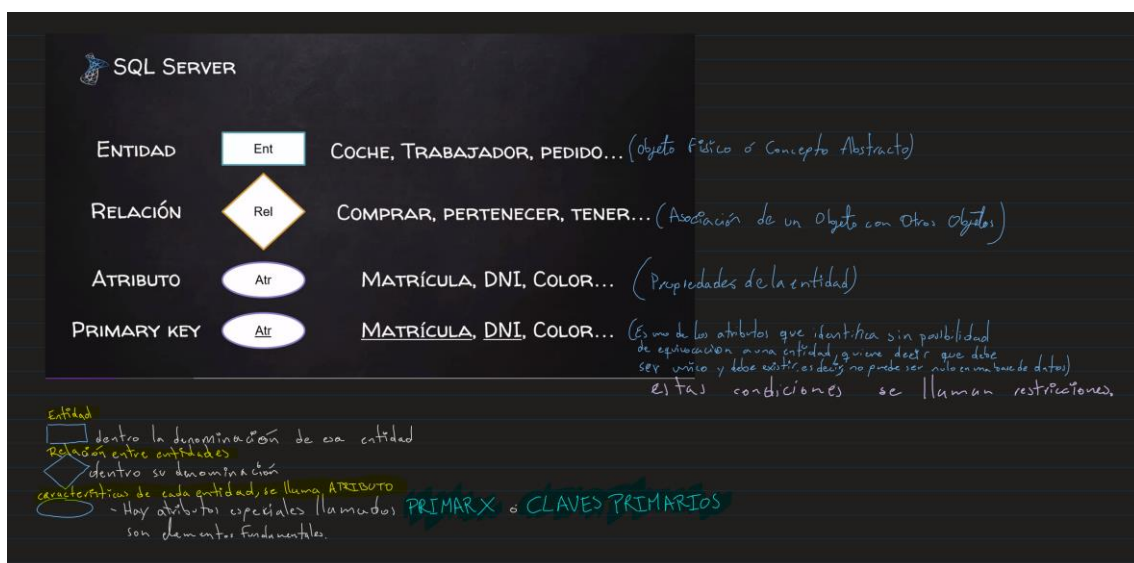 SQL SERVER
ENTIDAD Ent COCHE, TRABAJADOR, PEDIDO... (objeto Físico ó Concepto Abstracto)
RELACIÓN Rel COMPRAR, PERTENECER, TENER... (Asociación de un Objeto con Otros Objetos)
ATRIBUTO Atr MATRÍCULA, DNI, COLOR... (Propiedades de la entidad)
PRIMARY KEY Atr MATRÍCULA, DNI, COLOR... (Es uno de los atributos que identifica sin posibilidad
de equivocación a una entidad, quiere decir que debe
ser único y debe existir, es decir, no puede ser nulo en una base de datos)
estas condiciones se llaman restricciones.
Entidad
dentro la denominación de esa entidad
Relación entre entidades
dentro su denominación
características de cada entidad, se llama ATRIBUTO
- Hay atributos especiales llamados PRIMARX ó CLAVES PRIMARIOS
son elementos Fundamentales.